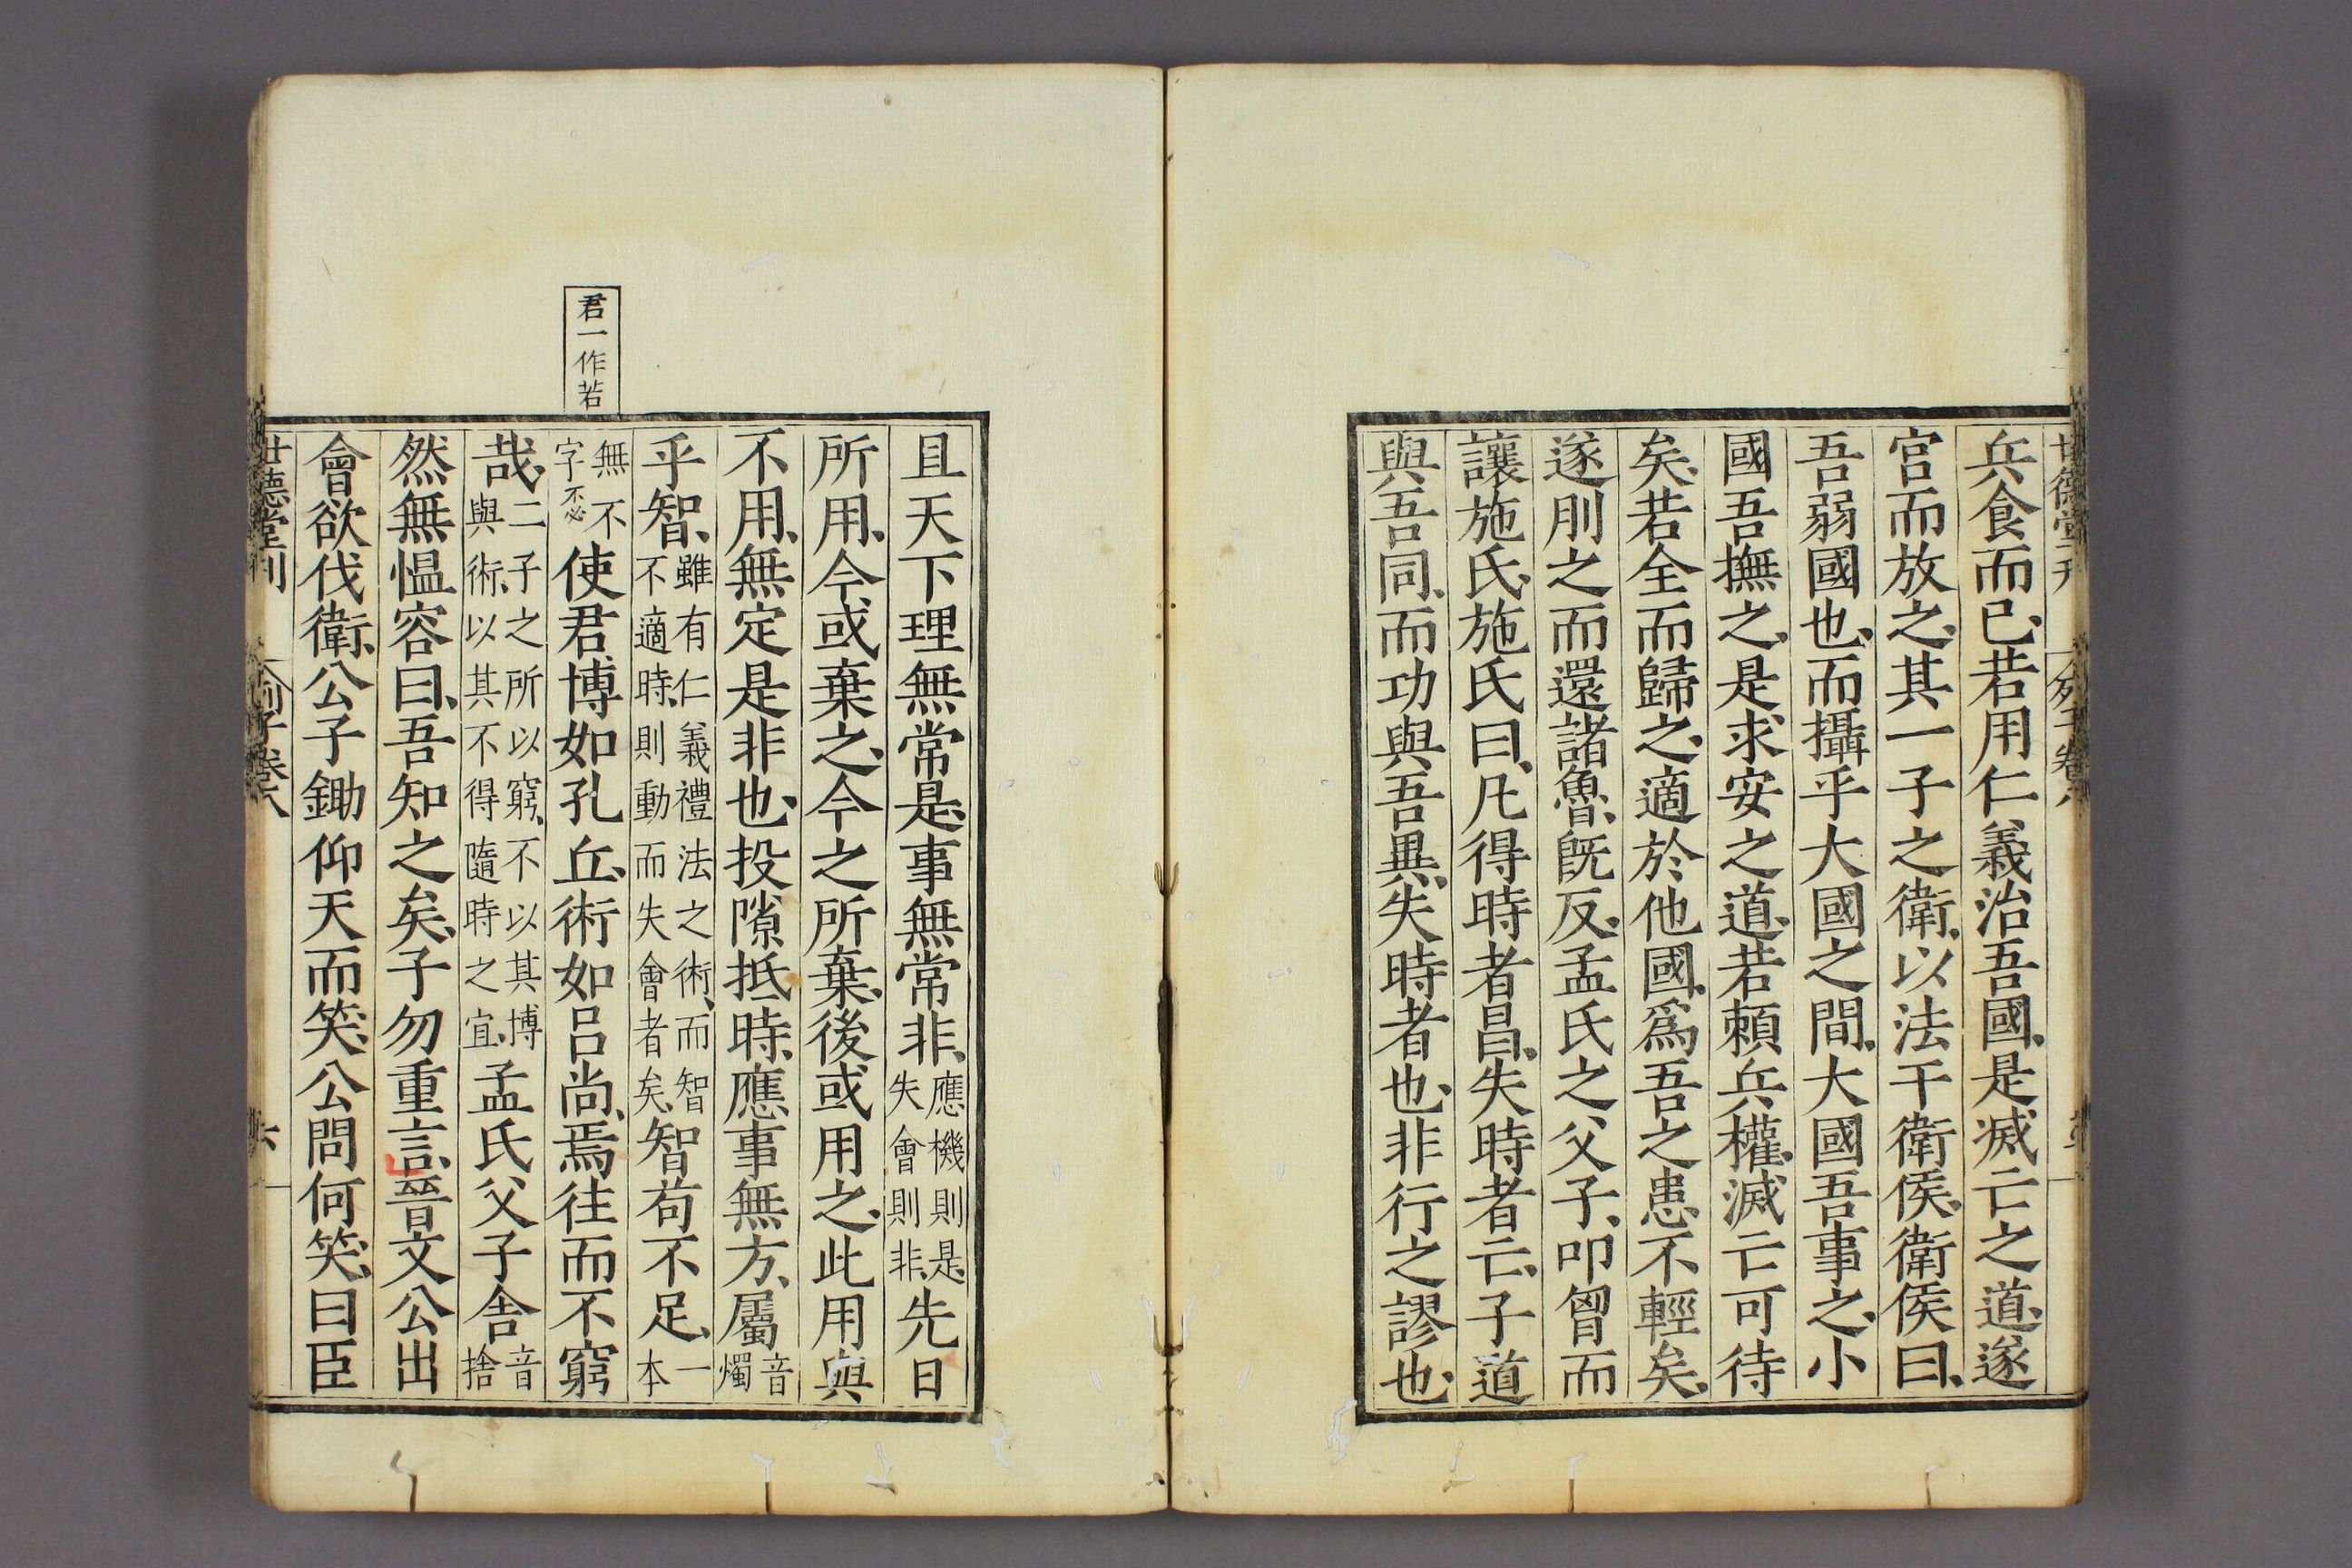 兵食而已、若用仁義治吾國、是滅亡之道、遂
宮而放之、其一子之衛、以法干衛侯、衛侯曰、
吾弱國也、而攝乎大國之間、大國吾事之、小
國吾撫之、是求安之道、若賴兵權、滅亡可待
矣、若全而歸之、適於他國、爲吾之患不輕矣、
遂刖之而還諸魯、旣反、孟氏之父子、叩胷而
讓施氏、施氏曰、凡得時者昌、失時者亡、子道
與吾同、而功與吾異、失時者也、非行之謬也、
君一作若
且天下理無常是、事無常非、應機則是、失會則非、先日
所用、今或棄之、今之所棄、後或用之、此用與
不用、無定是非也、投隙抵時、應事無方、屬音燭
乎智、雖有仁義禮法之術、而智不適時、則動而失會者矣、智苟不足、一本
無不字不必使君、博如孔丘、術如呂尚、焉往而不窮
哉、二子之所以窮、不以其博與術、以其不得隨時之宜、孟氏父子舍音捨
然無慍容曰、吾知之矣、子勿重言、晉文公出
會欲伐衛、公子鋤仰天而笑、公問何笑、曰臣
世德堂刊 列子卷八 六